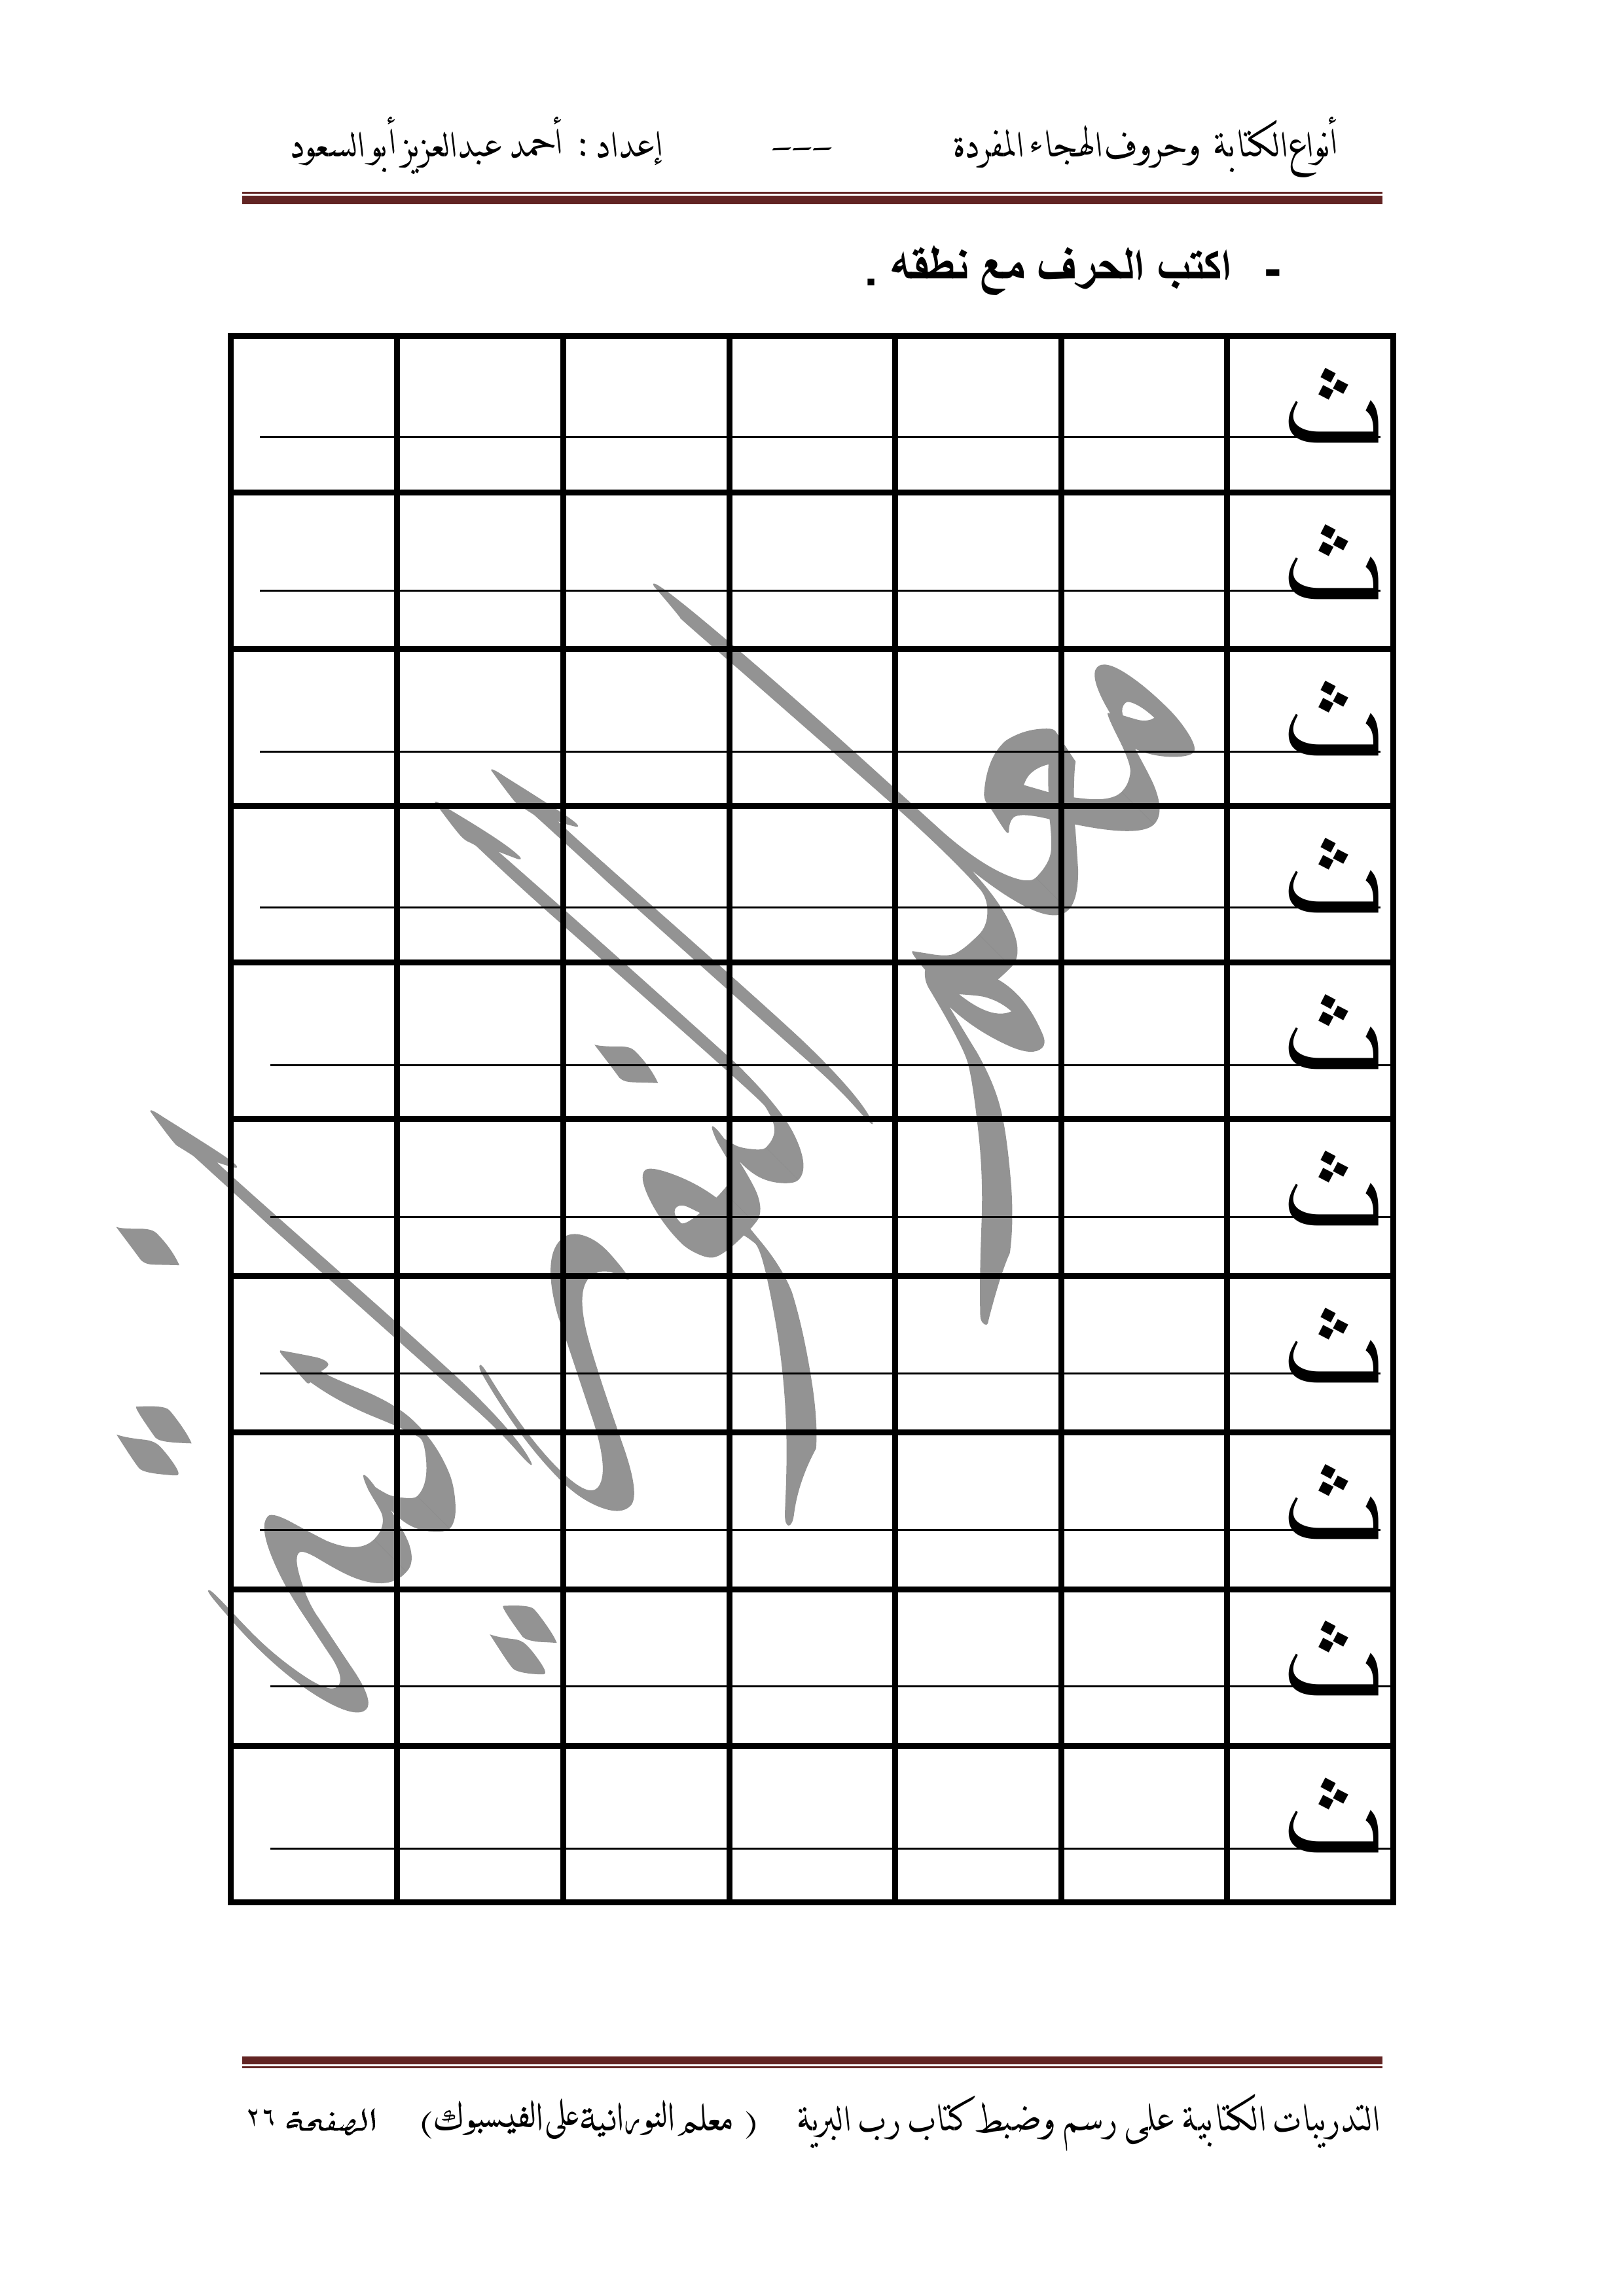 أنواع الكتابة وحروف الهجاء المفردة --- إعداد : أحمد عبدالعزيز أبو السعود
- اكتب الحرف مع نطقه .
ث
ث
ث
ث
ث
ث
ث
ث
ث
ث
معلم النورانية
التدريبات الكتابية على رسم وضبط كتاب رب البرية ( معلم النورانية على الفيسبوك ) الصفحة ٢٦